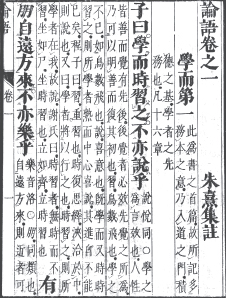 論語卷之一
朱熹集註
學而第一
此爲書之首篇故所記多
務本之意乃入道之門積
德之基學者之先
務也凡十六章
子曰學而時習之不亦說乎
說悅同○學之
爲言效也人性
皆善而覺有先後後覺者必效先覺之所爲
乃可以明善而復其初也習鳥數飛也學之
不已如鳥數飛也說喜意也旣學而又時時
習之則所學者熟而中心喜說其進自不能
已矣程子曰習重習也時復思繹浹洽於中
則說也又曰學者將以行之也時習之則所
學者在我故說謝氏曰時習者無時而不
習坐如尸坐時習也立如齊立時習也
有
朋自遠方來不亦樂乎
樂音洛○朋同類也
自遠方來則近者可
論語
卷一